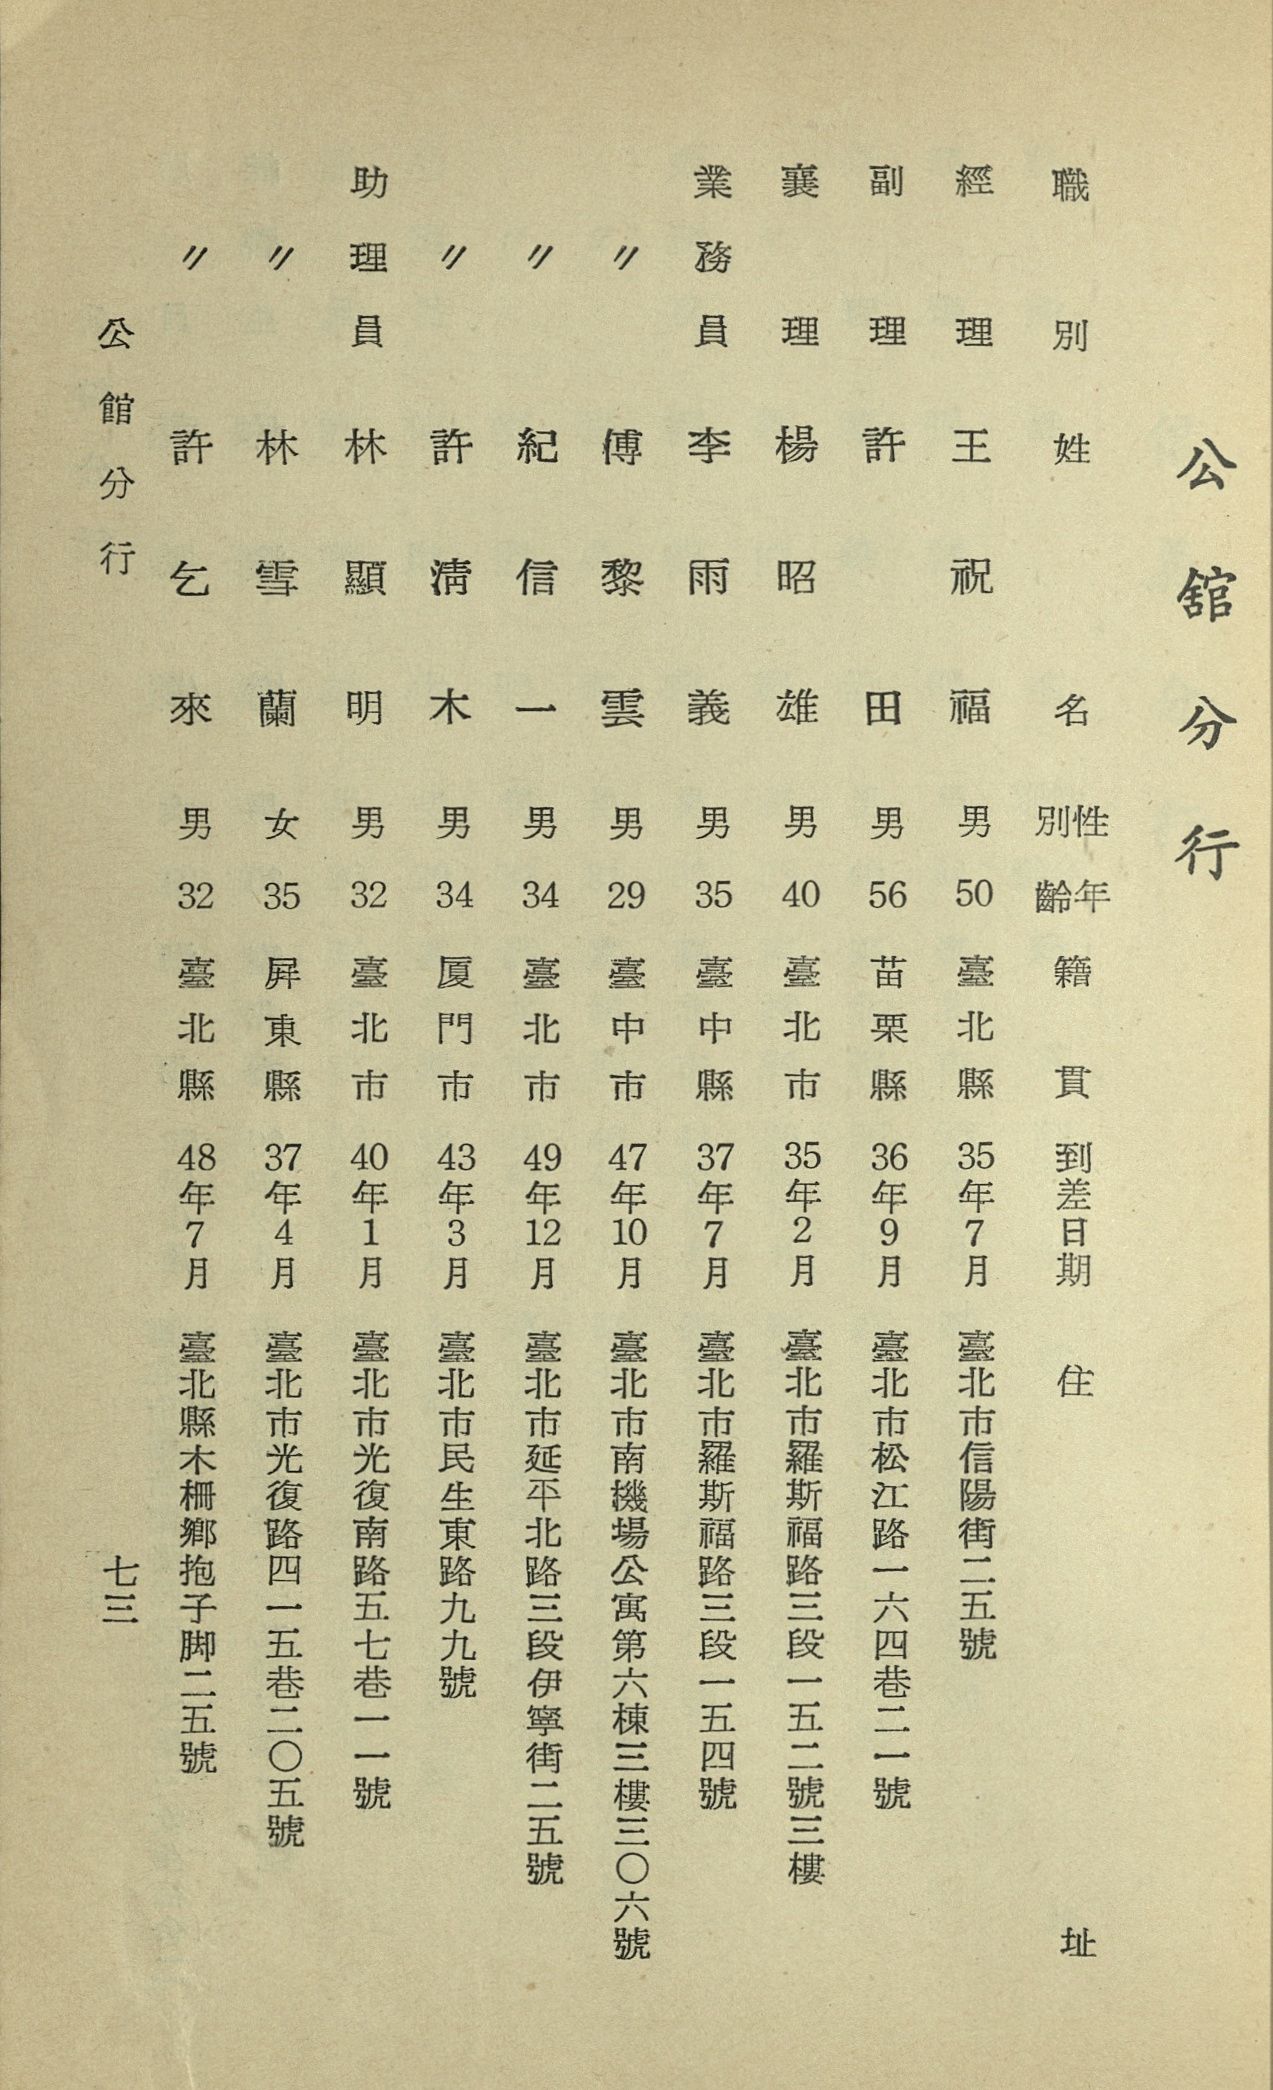 公舘分行
職別 姓名 性別 年齡 籍貫 到差日期 住址
經理 王祝福 男 50 臺北縣 35年7月 臺北市信陽街二五號
副理 許田 男 56 苗栗縣 36年9月 臺北市松江路一六四巷二一號
襄理 楊昭雄 男 40 臺北市 35年2月 臺北市羅斯福路三段一五二號三樓
業務員 李雨義 男 35 臺中縣 37年7月 臺北市羅斯福路三段一五四號
〃 傅黎雲 男 29 臺中市 47年10月 臺北市南機場公寓第六棟三樓三〇六號
〃 紀信一 男 34 臺北市 49年12月 臺北市延平北路三段伊寧街二五號
〃 許清木 男 34 厦門市 43年3月 臺北市民生東路九九號
助理員 林顯明 男 32 臺北市 40年1月 臺北市光復南路五七巷一一號
〃 林雪蘭 女 35 屏東縣 37年4月 臺北市光復路四一五巷二〇五號
〃 許乞來 男 32 臺北縣 48年7月 臺北縣木柵鄉抱子脚二五號
公館分行 七三